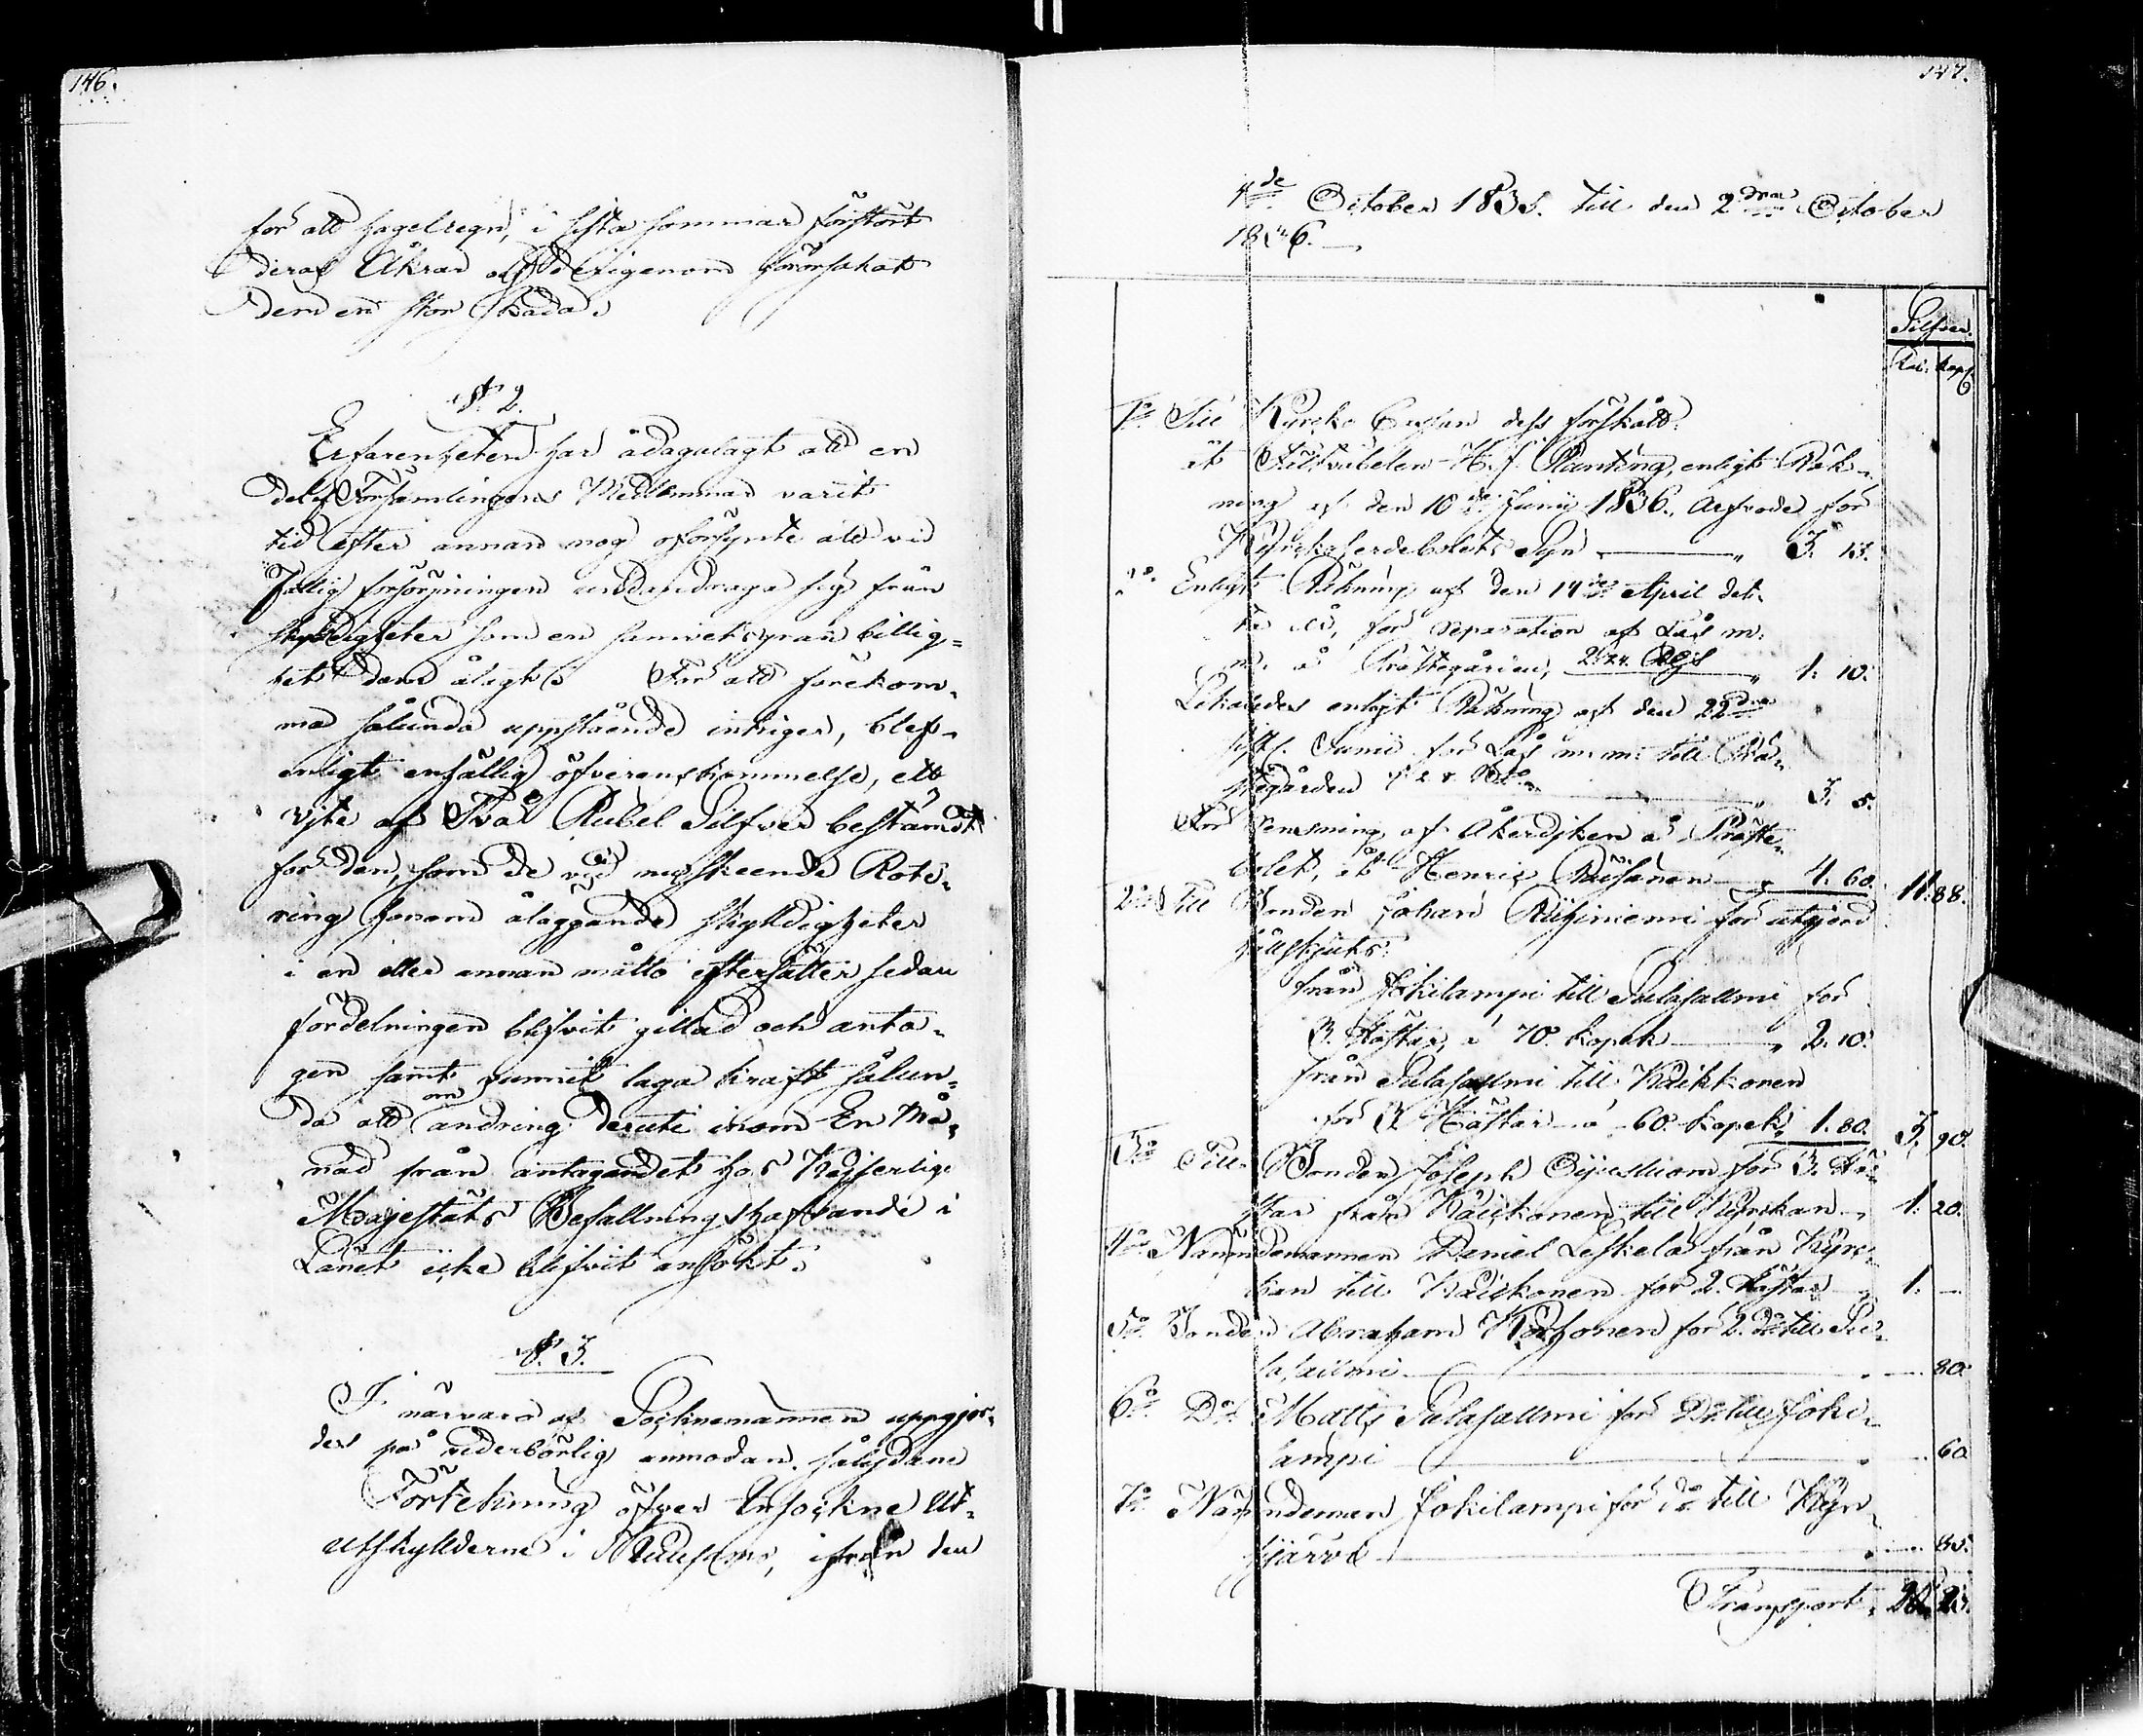 146.
för att hagelregn, i sista sommar förstört
deras Åkrar och derigenom förorsakat
dem en stor skada.
§. 2.
Erfarenheten har ådagalagt att en
del af Församlingens Medlemmar varit
tid efter annan nog oförsynte att vid
Fattig försörjningen undandraga sig från
skyldigheter som en samvetsgran billig=
het dem ålagt. För att förekom-
ma sålunda uppstående intriger, blef
enligt enhällig öfverenskommelse, ett
vite af Två Rubel Silfver bestämdt
för den, som de vid nu skeende Rote-
ring honom åläggande skylldigheter
i en eller annan måtto eftersätter sedan
fördelningen blifvit gillad och anta-
gen samt vunnit laga kraft sålun-
da att om ändring deruti inom En Må-
nad från antagandet hos Kejserlige
Majestäts Befallningshafvande i
Länet icke blifvit ansökt.
§. 3.
I närvaro af Socknemannen uppgjor-
des på vederbörlig anmodan följdane
Förtekning öfver Insockne Ut-
utskyllderne i Kuusamo, ifrån den
147.
4de October 1835. till den 2dra October
1836.
Silfver.
Rub. kop.
1o Till Kyrcko Cassan dess förskott.
åt Fältväbelen H. J. Planting, enligt Räk-
ning af den 10de Junii 1836., Arfvode för
Kyrkoherdebolets Syn 3. 13.
2o Enligt Räkning af den 14de April det-
ta år, för reparation af Lås m.
m. å Prästegården, 1. 10.
Likaledes enligt Räkning af den 22dra
sistl. Junii för Lås m: m: till Prä-
stegården 3. 5.
För rensning af Åkerdiken å Präste-
bolet, åt Henric Räisänen 4. 60. 11. 88.
2o Till Bonden Johan Riihiniemi för utgjord
hållskjuts:
från Jokilampi till Suksallmi för
3. Hästar, à 70. kopek 2. 10.
från till
för 3 Hästar à 60. kopek, 1. 80. 3. 90.
3o Till Bonden Joseph för 3. Hä-
star från till Kyrkan 1. 20.
4o Nämndemannen Daniel Leskelä från Kyrc-
kan till för 2. Hästar 1. —
5o Bonden Abraham för 2. do till
80.
6o Do Matts för Do till Joki-
lampi 60.
7o Nämndeman Jokilampi för do till
järvi 85.
Transport.